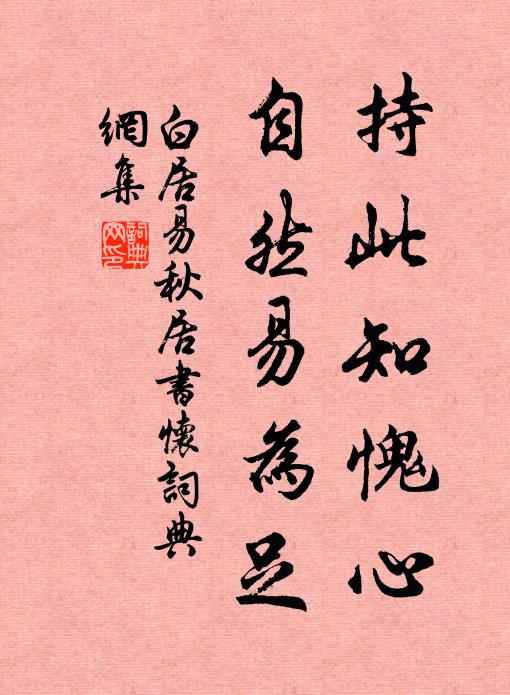 持此知愧心
自然易為足
白居易秋居書懷詞典
網集
詞典
网印